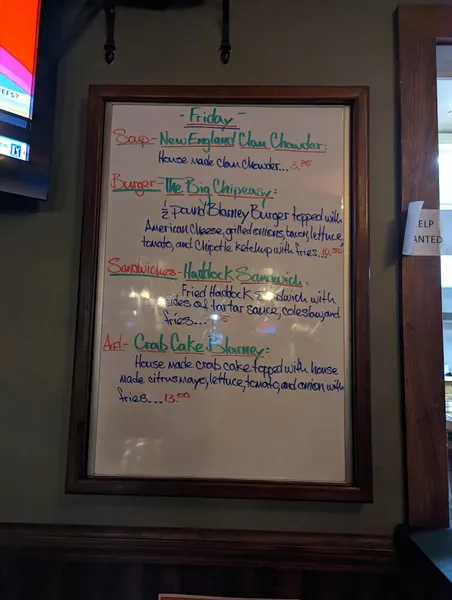 - Friday -
Soup - New England Clam Chowder:
House made clam chowder... 3.75
Burger - The Big Chipeasy:
1/2 pound Blarney Burger topped with
American cheese, grilled onions, bacon, lettuce,
tomato, and Chipotle ketchup with fries..
Sandwiches - Haddock Sandwich:
Fried Haddock Sandwich with
sides of tartar sauce, coleslaw, and
fries...
And - Crab Cake Blarney:
House made crab cake topped with house
made citrus mayo, lettuce, tomato, and onion with
fries... 13.00
ELP
ANTED